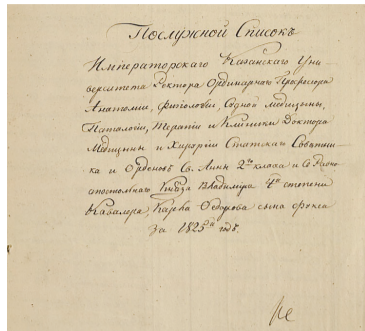 Послужной Списокъ
Императорскаго Казанскаго Уни-
верситета Ректора Ординарнаго Профессора
Анатомiи, Физiологiи, Судной Медицины,
Патологiи, Терапiи и Клиники Доктора
Медицины и Хирургiи Статскаго Совѣтни-
ка и Орденовъ Св. Анны 2го класса и Св. Равно
апостольнаго Князя Владимiра 4й степени
Кавалера, Карла Ѳедорова сына Фукса
за 1825й годъ.